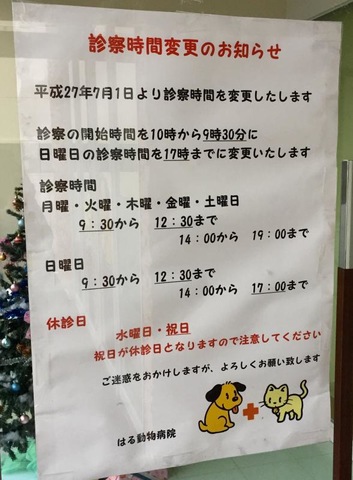 診察時間変更のお知らせ
平成27年7月1日より診察時間を変更たします
診察の開始時間を10時から9時30分に
日曜日の診察時間を17時までに変更いたします
診察時間
月曜・火曜・木曜・金曜・土曜日
9:30から 12:30まで
14:00から 19:00まで
日曜日
9:30から 12:30まで
14:00から 17:00まで
休診日 水曜日・祝日
祝日が休診日となりますので注意してください
ご迷惑をおかけしますが、よろしくお願い致します
はる動物病院